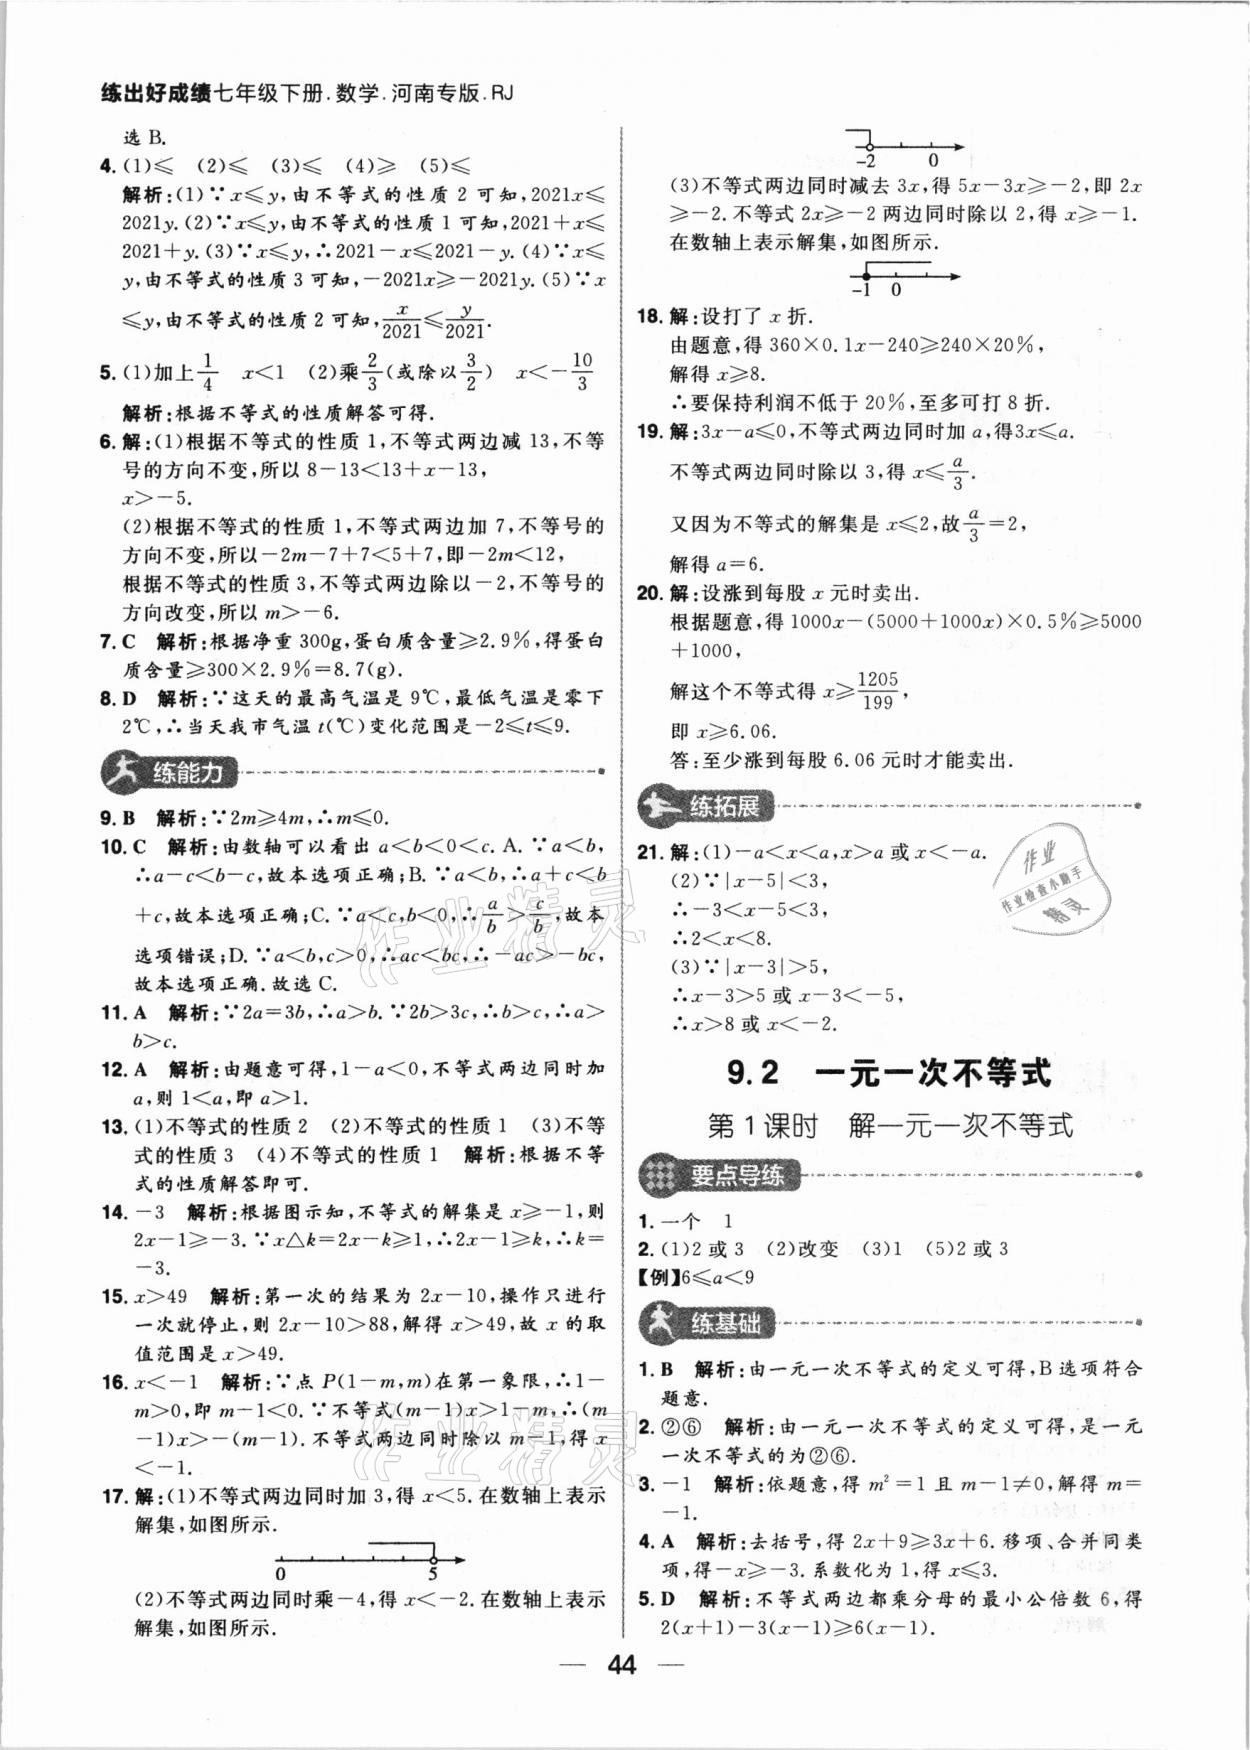 练出好成绩七年级下册.数学.河南专版.RJ
选 B.
4. (1)≤ (2)≤ (3)≤ (4)≥ (5)≤
解析:(1)∵x≤y,由不等式的性质 2 可知,2021x≤
2021y.(2)∵x≤y,由不等式的性质 1 可知,2021+x≤
2021+y.(3)∵x≤y,∴2021-x≤2021-y.(4)∵x≤
y,由不等式的性质 3 可知,-2021x≥-2021y.(5)∵x
≤y,由不等式的性质 2 可知,x/2021≤y/2021.
5. (1)加上1/4 x<1 (2)乘2/3(或除以3/2) x<-10/3
解析:根据不等式的性质解答可得.
6. 解:(1)根据不等式的性质 1,不等式两边减 13,不等
号的方向不变,所以 8-13<13+x-13,
x>-5.
(2)根据不等式的性质 1,不等式两边加 7,不等号的
方向不变,所以-2m-7+7<5+7,即-2m<12,
根据不等式的性质 3,不等式两边除以-2,不等号的
方向改变,所以 m>-6.
7. C 解析:根据净重 300g,蛋白质含量≥2.9%,得蛋白
质含量≥300×2.9%=8.7(g).
8. D 解析:∵这天的最高气温是 9℃,最低气温是零下
2℃,∴当天我市气温 t(℃)变化范围是-2≤t≤9.
练能力
9. B 解析:∵2m≥4m,∴m≤0.
10. C 解析:由数轴可以看出 a<b<0<c. A. ∵a<b,
∴a-c<b-c,故本选项正确;B. ∵a<b,∴a+c<b
+c,故本选项正确;C. ∵a<c,b<0,∴a/b>c/b,故本
选项错误;D. ∵a<b,c>0,∴ac<bc,∴-ac>-bc,
故本选项正确.故选 C.
11. A 解析:∵2a=3b,∴a>b.∵2b>3c,∴b>c,∴a>
b>c.
12. A 解析:由题意可得,1-a<0,不等式两边同时加
a,则 1<a,即 a>1.
13. (1)不等式的性质 2 (2)不等式的性质 1 (3)不等
式的性质 3 (4)不等式的性质 1 解析:根据不等
式的性质解答即可.
14. -3 解析:根据图示知,不等式的解集是 x≥-1,则
2x-1≥-3.∵x△k=2x-k≥1,∴2x-1≥k,∴k=
-3.
15. x>49 解析:第一次的结果为 2x-10,操作只进行
一次就停止,则 2x-10>88,解得 x>49,故 x 的取
值范围是 x>49.
16. x<-1 解析:∵点 P(1-m,m)在第一象限,∴1-
m>0,即 m-1<0.∵不等式(m-1)x>1-m,∴(m
-1)x>-(m-1).不等式两边同时除以 m-1,得 x
<-1.
17. 解:(1)不等式两边同时加 3,得 x<5.在数轴上表示
解集,如图所示.
0 5
(2)不等式两边同时乘-4,得 x<-2.在数轴上表示
解集,如图所示.
-2 0
(3)不等式两边同时减去 3x,得 5x-3x≥-2,即 2x
≥-2.不等式 2x≥-2 两边同时除以 2,得 x≥-1.
在数轴上表示解集,如图所示.
-1 0
18. 解:设打了 x 折.
由题意,得 360×0.1x-240≥240×20%,
解得 x≥8.
∴要保持利润不低于 20%,至多可打 8 折.
19. 解:3x-a≤0,不等式两边同时加 a,得3x≤a.
不等式两边同时除以 3,得 x≤a/3.
又因为不等式的解集是 x≤2,故a/3=2,
解得 a=6.
20. 解:设涨到每股 x 元时卖出.
根据题意,得 1000x-(5000+1000x)×0.5%≥5000
+1000,
解这个不等式得 x≥1205/199,
即 x≥6.06.
答:至少涨到每股 6.06 元时才能卖出.
练拓展
21. 解:(1)-a<x<a,x>a 或 x<-a.
(2)∵|x-5|<3,
∴-3<x-5<3,
∴2<x<8.
(3)∵|x-3|>5,
∴x-3>5 或 x-3<-5,
∴x>8 或 x<-2.
9.2 一元一次不等式
第 1 课时 解一元一次不等式
要点导练
1. 一个 1
2. (1)2 或 3 (2)改变 (3)1 (5)2 或 3
【例】6≤a<9
练基础
1. B 解析:由一元一次不等式的定义可得,B 选项符合
题意.
2. ②⑥ 解析:由一元一次不等式的定义可得,是一元
一次不等式的为②⑥.
3. -1 解析:依题意,得 m²=1 且 m-1≠0,解得 m=
-1.
4. A 解析:去括号,得 2x+9≥3x+6.移项、合并同类
项,得-x≥-3.系数化为 1,得 x≤3.
5. D 解析:不等式两边都乘分母的最小公倍数 6,得
2(x+1)-3(x-1)≥6(x-1).
44
作业
作业检查小助手
精灵
作业精灵
作业精灵